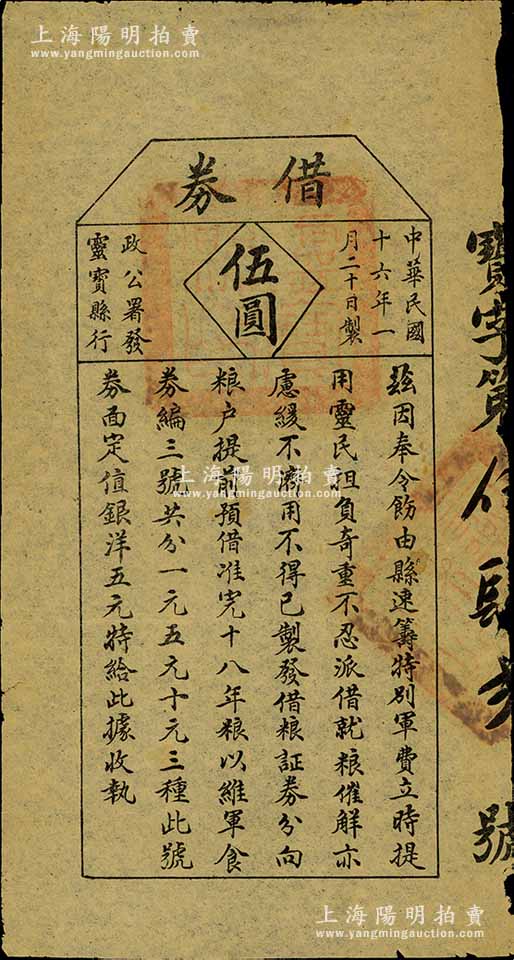 上海陽明拍賣
www.yangmingauction.com
借券
中華民國
十六年一
月二十日製
伍圓
政公署發
靈寶縣行
茲因奉令飭由縣速籌特別軍費立時提
用靈民担負奇重不忍派借就粮催解亦
慮緩不濟用不得已製發借粮証券分向
粮户提前預借准完十八年粮以維軍食
券編三號共分一元五元十元三種此號
券面定值銀洋五元特給此據收執
寶字第
號
上海陽明拍賣
www.yangmingauction.com
上海陽明拍賣
www.yangmingauction.com